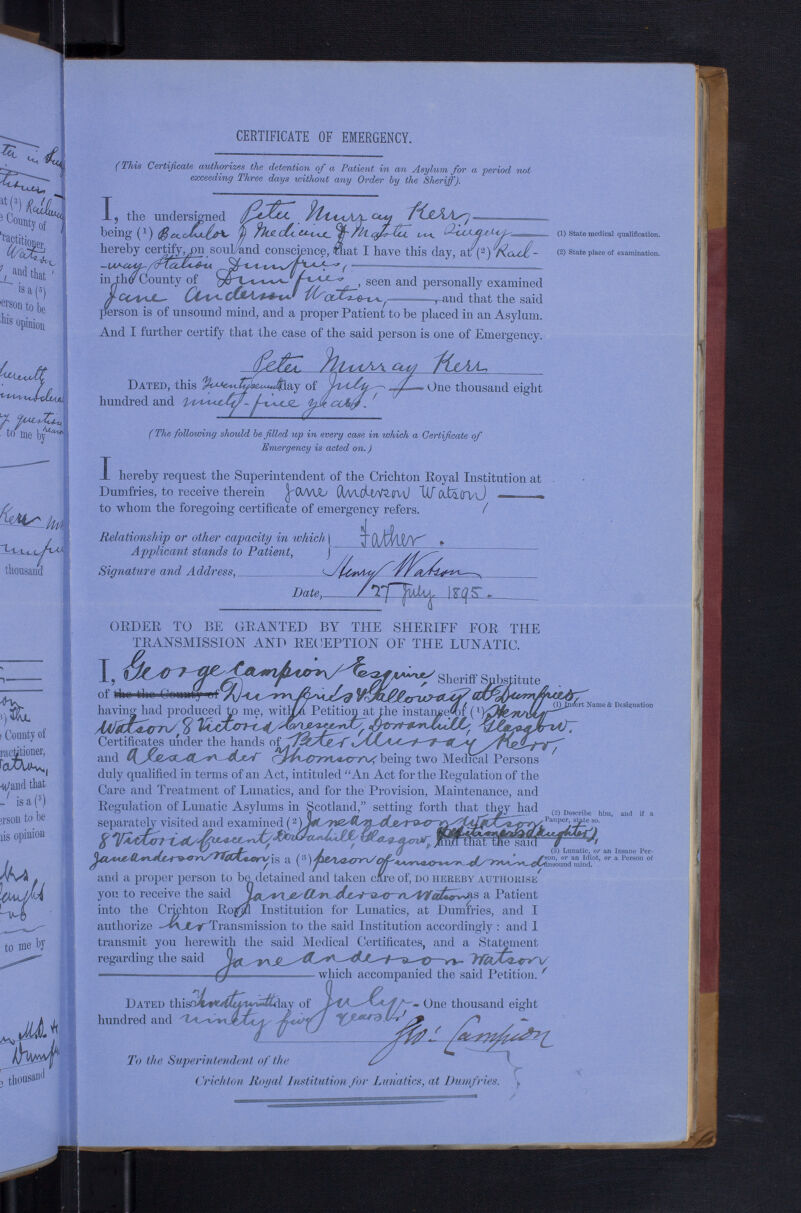 CERTIFICATE OF EMERGENCY.
(This Certificate authorizes the detention of a Patient in an Asylum for a period not
exceeding Three days without any Order by the Sheriff).
I, the undersigned Peter Murray Kerr,
being (1) Bachelor of Medicine & Master in Surgery
(1) State medical qualification.
hereby certify, on soul and conscience, that I have this day, at (2) Rail-
(2) State place of examination.
-way Station Dumfries,
in the County of Dumfries, seen and personally examined
Jane Anderson Watson, , and that the said
person is of unsound mind, and a proper Patient to be placed in an Asylum.
And I further certify that the case of the said person is one of Emergency.
Peter Murray Kerr
DATED, this Twentyseventh day of July One thousand eight
hundred and ninety-five years.
(The following should be filled up in every case in which a Certificate of
Emergency is acted on.)
I hereby request the Superintendent of the Crichton Royal Institution at
Dumfries, to receive therein Jane Anderson Watson
to whom the foregoing certificate of emergency refers.
Relationship or other capacity in which
Applicant stands to Patient, Father.
Signature and Address, Henry Watson
Date, 27 July 1895.
ORDER TO BE GRANTED BY THE SHERIFF FOR THE
TRANSMISSION AND RECEPTION OF THE LUNATIC.
I, George Campion Esquire, Sheriff Substitute
of the the County of Dumfries & Galloway at Dumfries,
having had produced to me, with a Petition at the instance of (1) Henry
(1) Insert Name & Designation
Watson, 8 Victoria Crescent, Dowanhill, Glasgow.
Certificates under the hands of Peter Murray Kerr,
and Alexander Thomson, being two Medical Persons
duly qualified in terms of an Act, intituled "An Act for the Regulation of the
Care and Treatment of Lunatics, and for the Provision, Maintenance, and
Regulation of Lunatic Asylums in Scotland," setting forth that they had
separately visited and examined (2) Jane Anderson Watson,
(2) Describe him, and if a
Pauper, state so.
8 Victoria Crescent, Dowanhill, Glasgow, (Petitioner's daughter), and that the said
Jane Anderson Watson is a (3) person of unsound mind
(3) Lunatic, or an Insane Per-
son, or an Idiot, or a Person of
unsound mind.
and a proper person to be detained and taken care of, DO HEREBY AUTHORISE
you to receive the said Jane Anderson Watson as a Patient
into the Crichton Royal Institution for Lunatics, at Dumfries, and I
authorize her Transmission to the said Institution accordingly: and I
transmit you herewith the said Medical Certificates, and a Statement
regarding the said Jane Anderson Watson
which accompanied the said Petition.
DATED this Twentyninth day of July One thousand eight
hundred and ninety five years.
Geo. Campion
To the Superintendent of the
Crichton Royal Institution for Lunatics, at Dumfries.